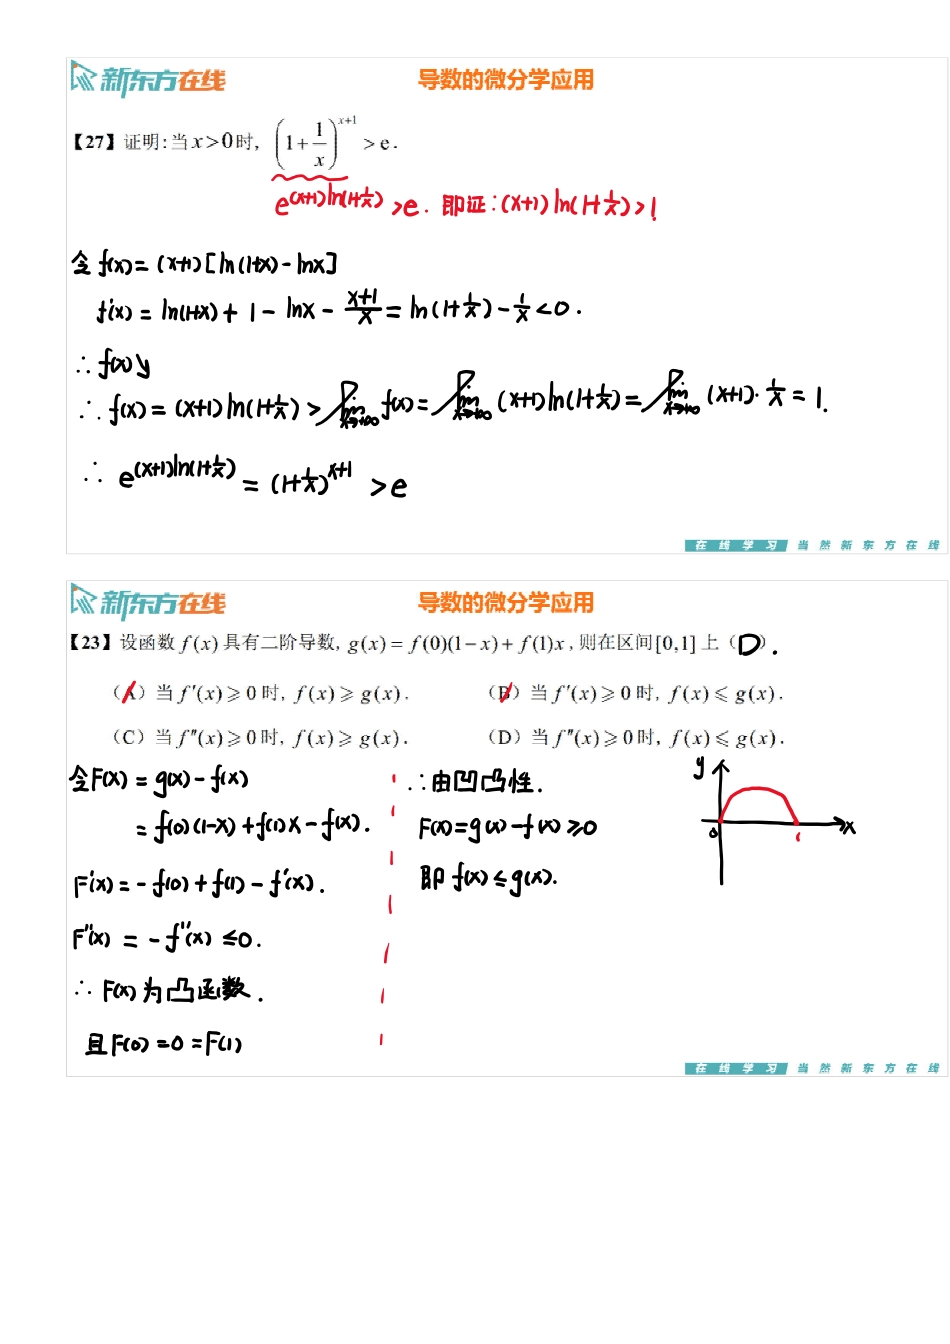 新东方在线 导数的微分学应用
【27】证明:当 x>0 时, (1+1/x)^{x+1} > e.
e^{(x+1)ln(1+1/x)} >e. 即证:(x+1) ln(1+1/x)>1
令 f(x)= (x+1)[ln(1+x)-lnx]
f'(x) = ln(1+x)+1-lnx-(x+1)/x = ln(1+1/x)-1/x<0.
∴ f(x)↘
∴ f(x)= (x+1)ln(1+1/x) > lim_{x→+∞} f(x)= lim_{x→+∞} (x+1)ln(1+1/x)= lim_{x→+∞} (x+1)·1/x = 1.
∴ e^{(x+1)ln(1+1/x)} = (1+1/x)^{x+1} >e
在线学习 当然新东方在线
新东方在线 导数的微分学应用
【23】设函数 f(x) 具有二阶导数, g(x) = f(0)(1-x)+ f(1)x ,则在区间[0,1]上( D ).
(A)当 f'(x)⩾0 时, f(x)⩾g(x). (B)当 f'(x)⩾0 时, f(x)⩽g(x).
(C)当 f"(x)⩾0 时, f(x)⩾g(x). (D)当 f"(x)⩾0 时, f(x)⩽g(x).
令F(x) = g(x)-f(x)
= f(0)(1-x)+f(1)x-f(x).
F'(x) = -f(0)+f(1)-f'(x).
F"(x) = -f"(x) ≤0.
∴ F(x)为凸函数.
且F(0)=0=F(1)
∴由凹凸性.
F(x)=g(x)-f(x)≥0
即 f(x)≤g(x).
y
0 1 x
在线学习 当然新东方在线